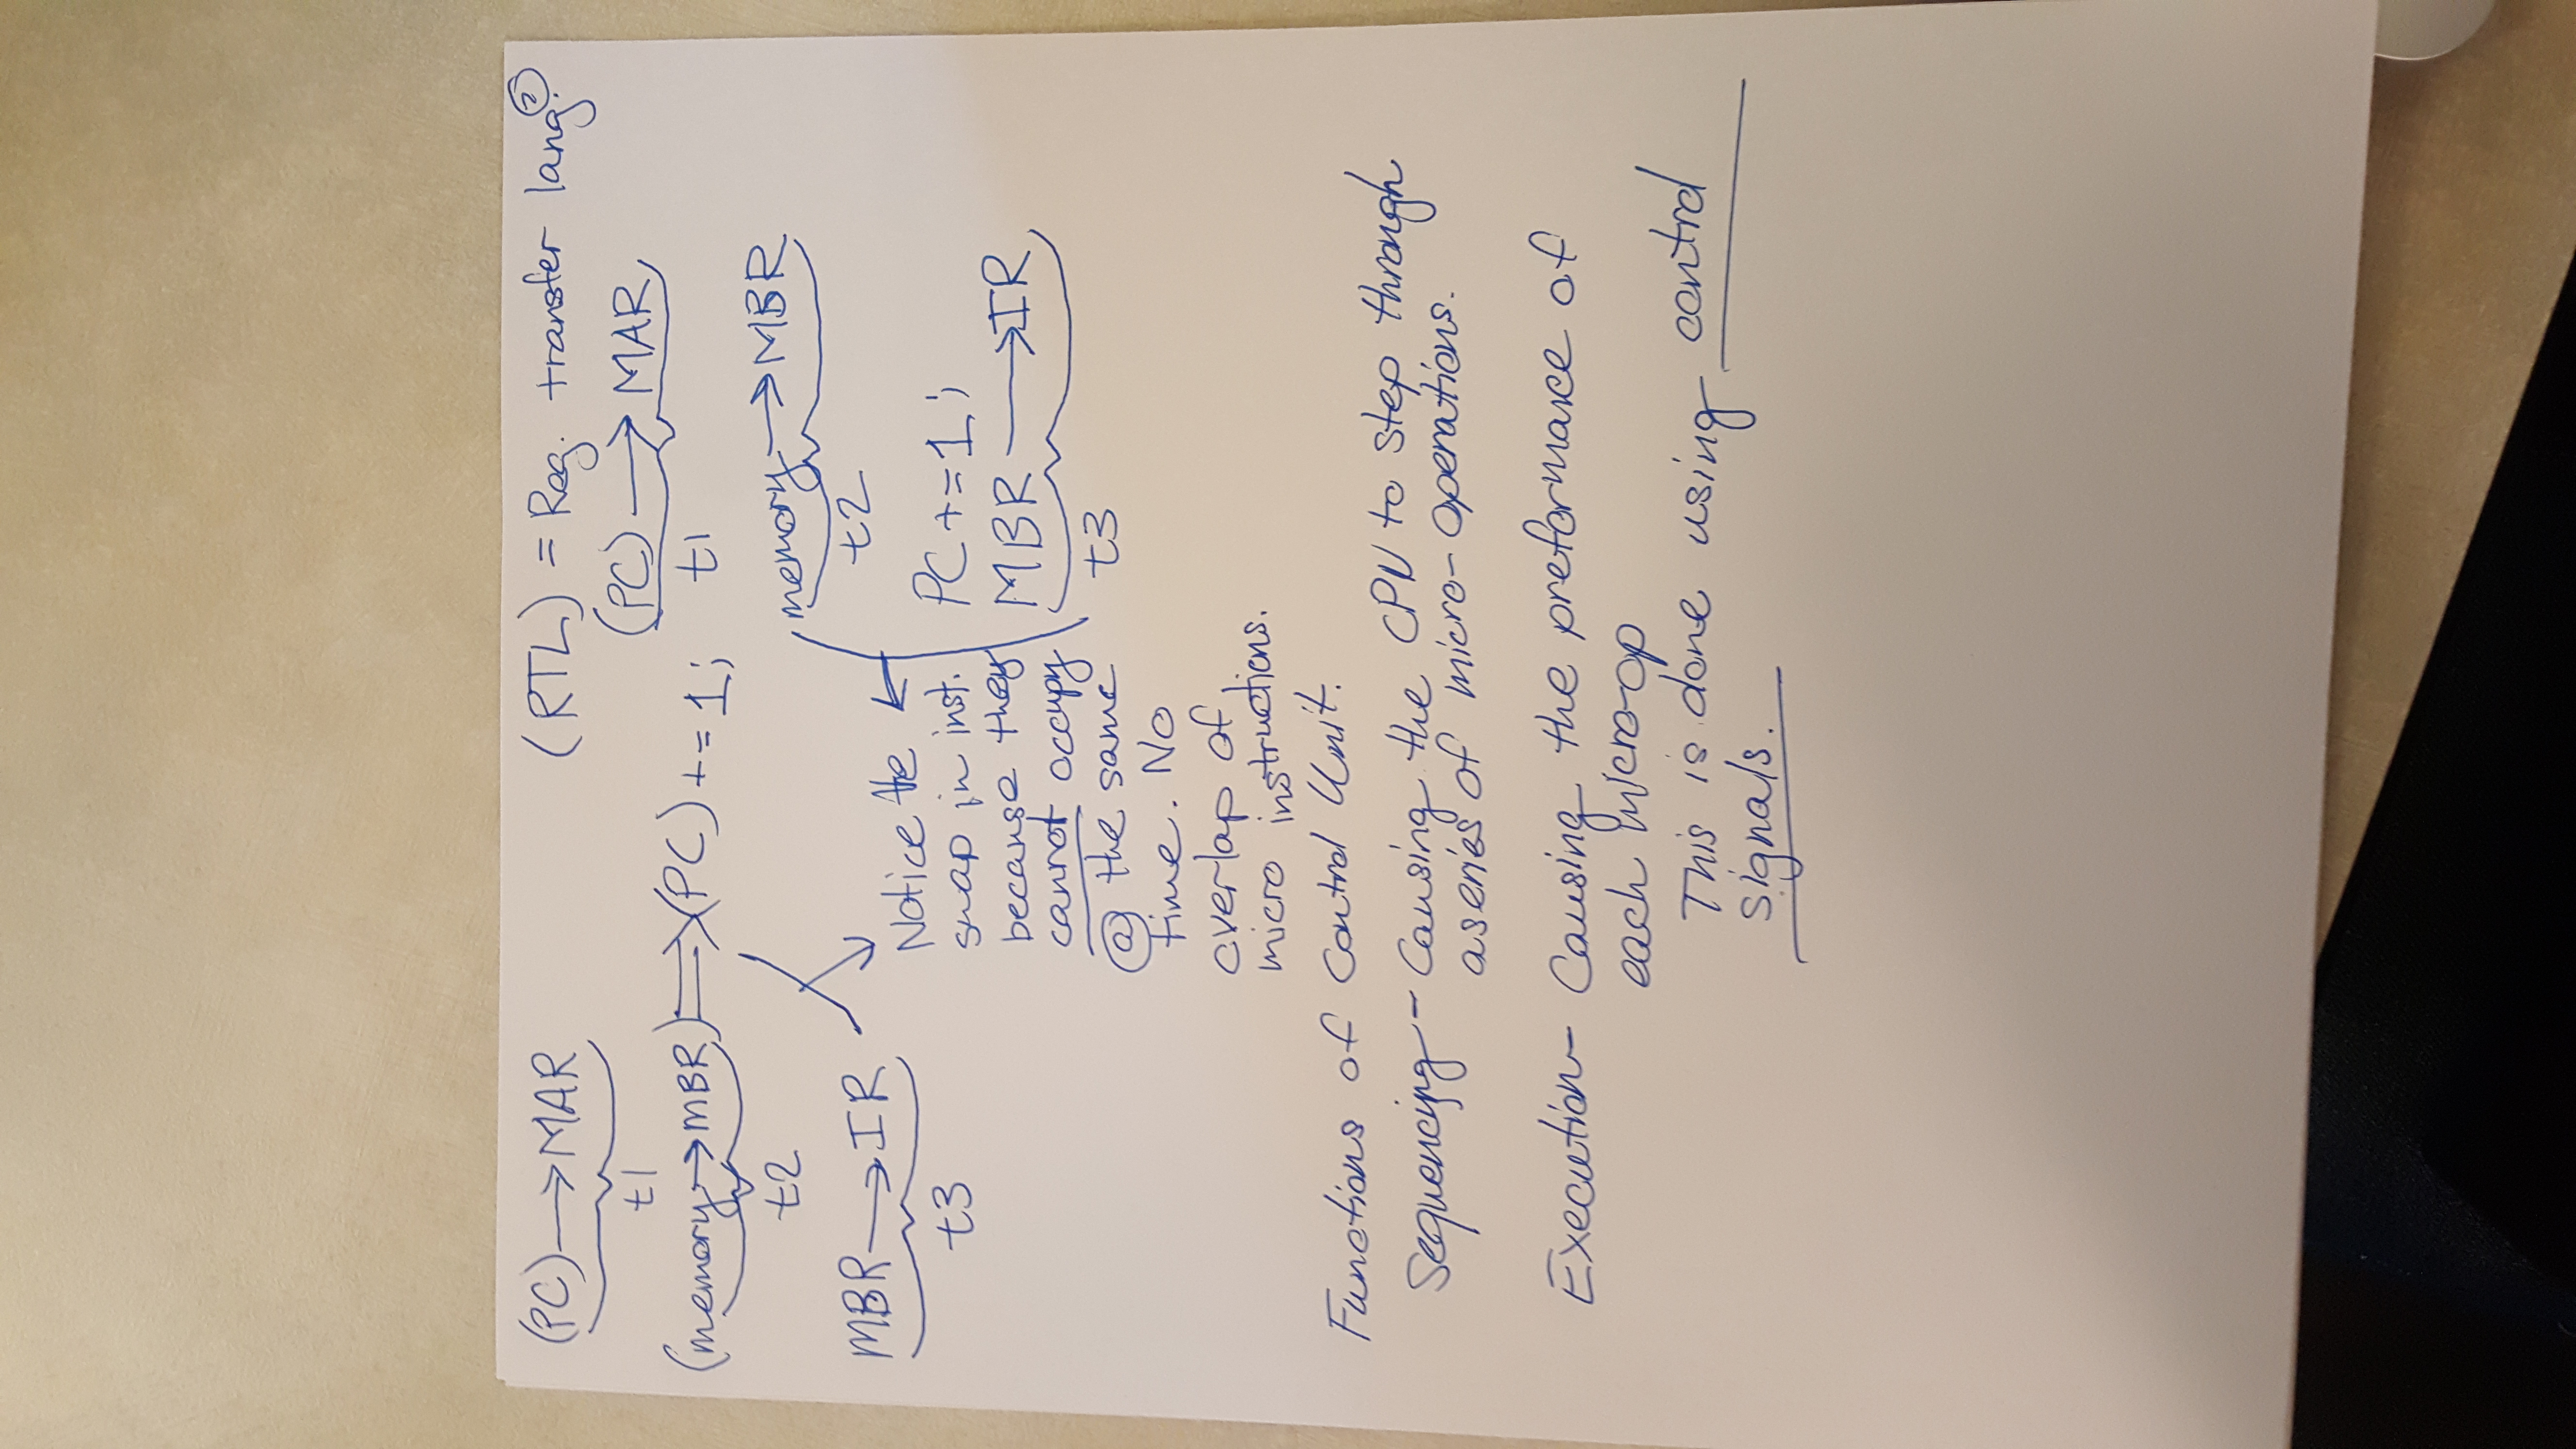 (PC) → MAR
t1
(memory → MBR) ⇒ (PC) += 1;
t2
MBR → IR
t3
(RTL) = Reg. transfer lang.
(PC) → MAR
t1
memory → MBR
t2
PC += 1;
MBR → IR
t3
Notice the
swap in inst.
because they
cannot occupy
@ the same
time. No
overlap of
micro instructions.
Functions of Control Unit.
Sequencing - Causing the CPU to step through
a series of micro-operations.
Execution - Causing the preformance of
each micro-op
This is done using control
signals.